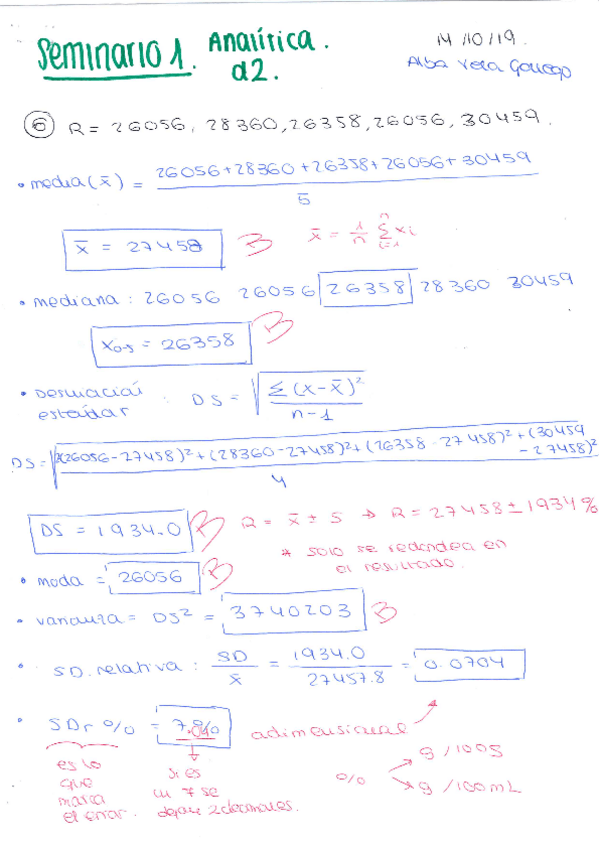 Seminario 1. Analítica. 14/10/19
d2. Alba Vera
⑥ R = 26056, 28360, 26358, 26056, 30459.
• media (x̄) = (26056+28360+26358+26056+30459) / 5
x̄ = 27458 B x̄ = 1/n Σ(i=1, n) xi
• mediana : 26056 26056 26358 28360 30459
X0.5 = 26358 B
• Desviación estándar : DS = √(Σ(x-x̄)² / (n-1))
DS = √((2(26056-27458)² + (28360-27458)² + (26358-27458)² + (30459-27458)²) / 4)
DS = 1934.0 B R = x̄ ± s → R = 27458 ± 1934 %
* solo se redondea en
el resultado.
• moda = 26056 B
• varianza = DS² = 3740203 B
• SD. relativa : SD/x̄ = 1934.0/27457.8 = 0.0704
• SDr % = 7% 7.04% adimensional
es lo que marca el error.
si es un 7 se dejan 2 decimales.
% → g/100g
→ g/100mL